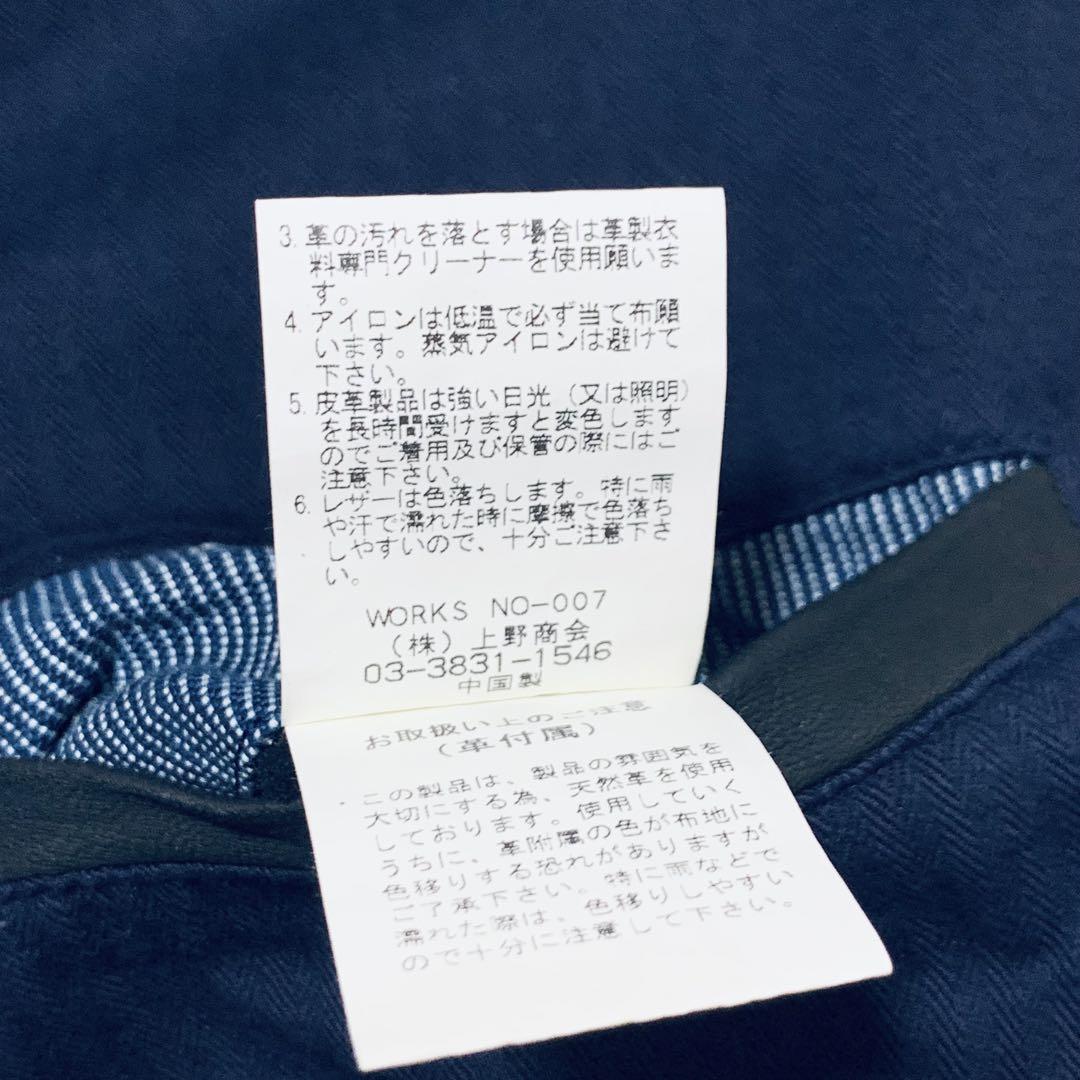 3. 革の汚れを落とす場合は革製衣
料専門クリーナーを使用願いま
す。
4. アイロンは低温で必ず当て布願
います。蒸気アイロンは避けて
下さい。
5. 皮革製品は強い日光（又は照明）
を長時間受けますと変色します
のでご着用及び保管の際にはご
注意下さい。
6. レザーは色落ちします。特に雨
や汗で濡れた時に摩擦で色落ち
しやすいので、十分ご注意下さ
い。
WORKS NO-007
（株）上野商会
03-3831-1546
中国製
お取扱い上のご注意
（革付属）
・この製品は、製品の雰囲気を
大切にする為、天然革を使用
しております。使用していく
うちに、革附属の色が布地に
色移りする恐れがありますが
ご了承下さい。特に雨などで
濡れた際は、色移りしやすい
ので十分に注意して下さい。